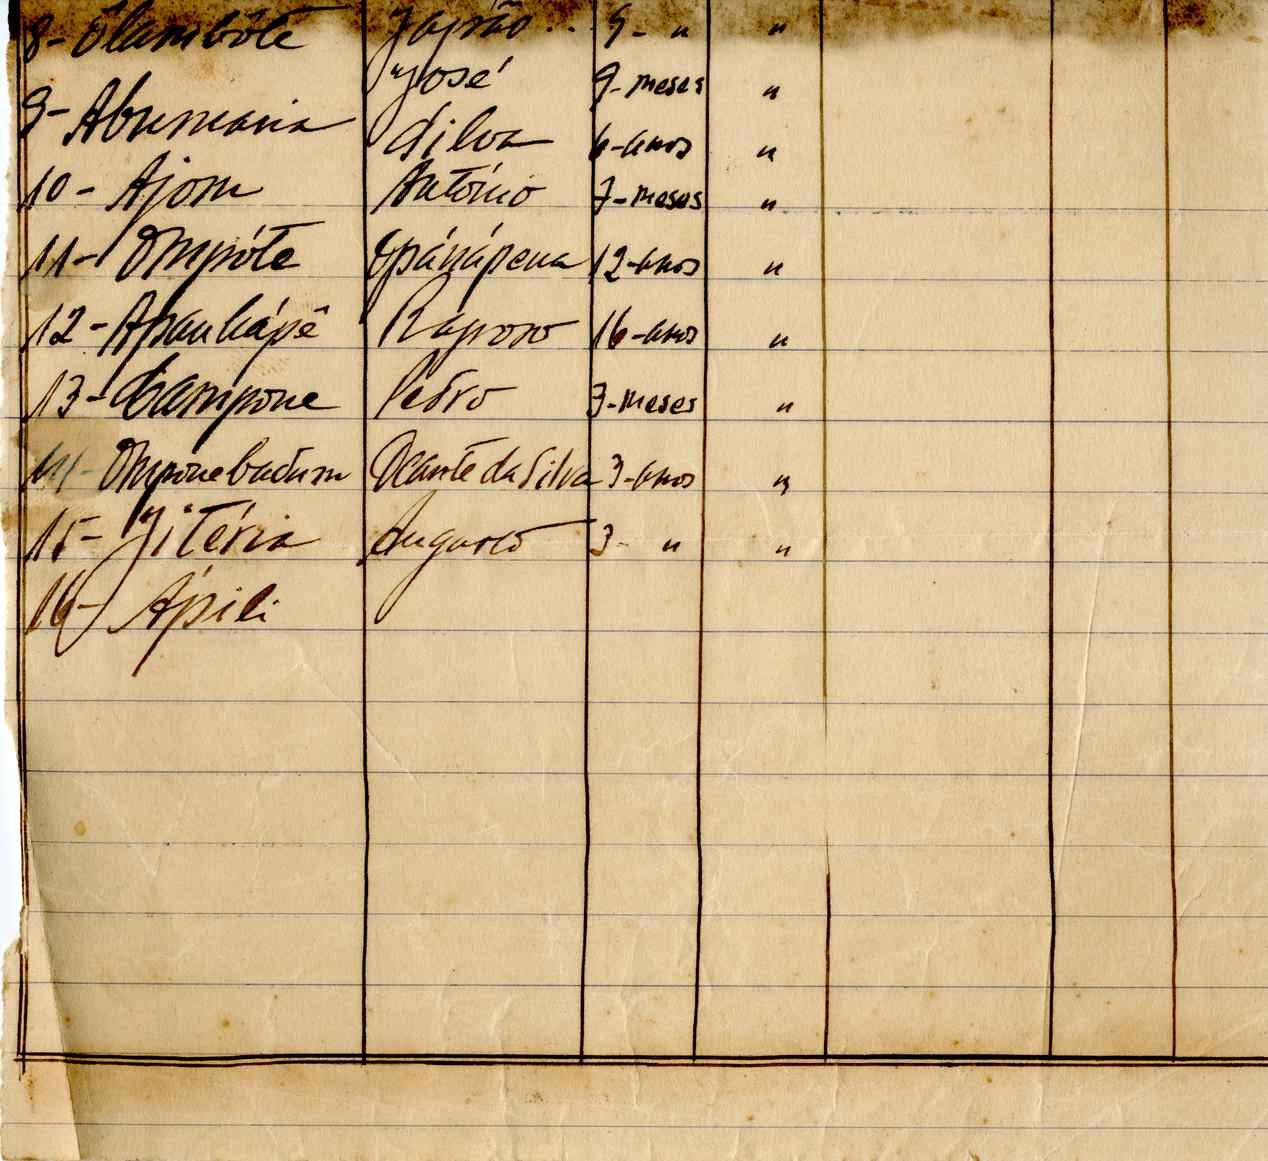 8- Ôlambôte Japão .. 9- " "
José 9- meses "
9- Abumaria Silva 6- anos "
10- Ajom António 7- meses "
11- Ompóte Opánápena 12- anos "
12- Apaukápê Raposo 16- anos "
13- Campone Pedro 3- meses "
14- Omponebadum Dante da Silva 3- anos "
15- Jitéria Augusto 3- " "
16- Ápili